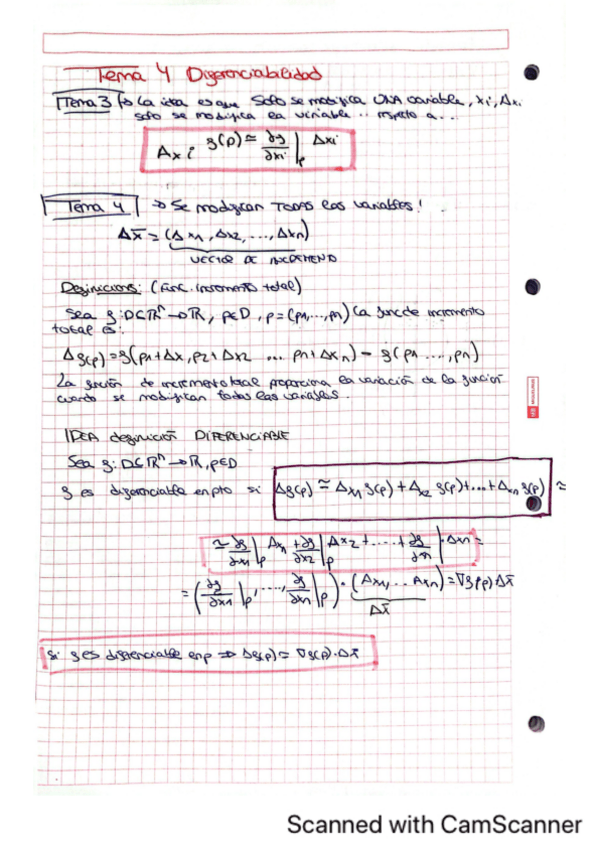 Tema 4 Diferenciabilidad
Tema 3 → La idea es que solo se modifica UNA variable, xi, Δxi
solo se modifica la variable .. respecto a...
Δxi f(p) ≃ ∂f/∂xi |p Δxi
Tema 4 → Se modifican TODAS las variables!
Δx̄ = (Δx1, Δx2, ..., Δxn)
VECTOR DE INCREMENTO
Definiciones: (Func. incremento total)
Sea f: D⊆ℝⁿ → ℝ, p∈D, p=(p1,...,pn) la func de incremento
total es:
Δf(p) = f(p1+Δx, p2+Δx2 ... pn+Δxn) − f(p1 ..., pn)
La función de incremento total proporciona la variación de la función
cuando se modifican todas las variables.
IDEA definición DIFERENCIABLE
Sea f: D⊆ℝⁿ → ℝ, p∈D
f es diferenciable en pto si: Δf(p) ≃ Δx1 f(p) + Δx2 f(p) + ... + Δxn f(p) ≃
≃ ∂f/∂x1 |p Δx1 + ∂f/∂x2 |p Δx2 + ... + ∂f/∂xn | · Δxn =
= (∂f/∂x1 |p, ..., ∂f/∂xn |p) · (Δx1, ... Δxn) = ∇f(p) Δx̄
Δx̄
Si f es diferenciable en p ⇒ Δf(p) ≃ ∇f(p) · Δx̄
MIQUELRIUS
Scanned with CamScanner